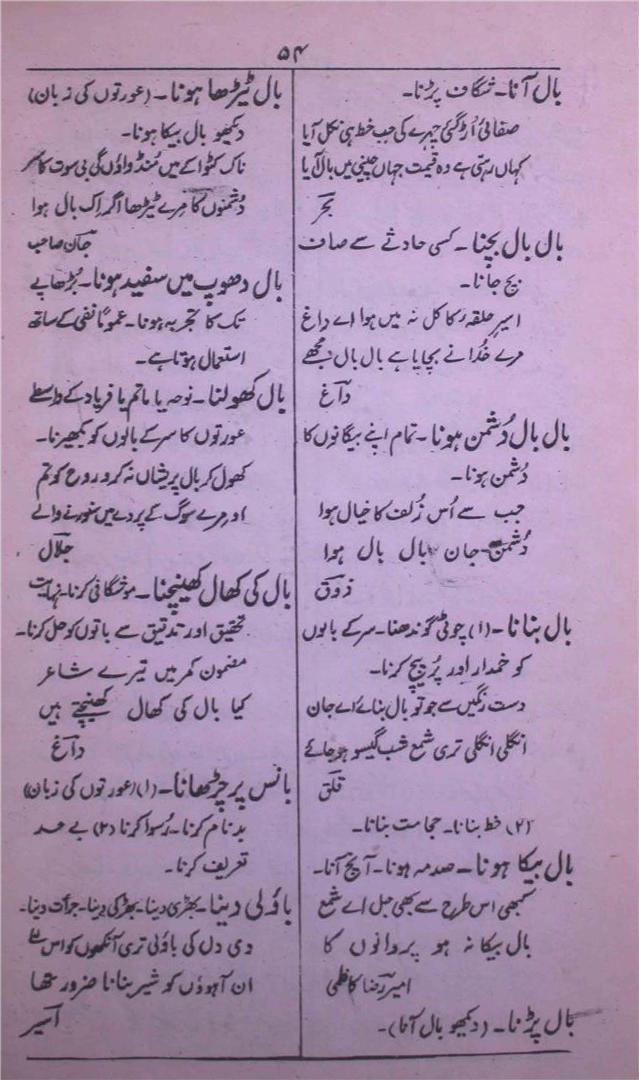 ۵۴
بال آنا۔ شگاف پڑنا۔
صفائی اُڑ گئی چہرے کی جب خط ہی نکل آیا
کہاں رہتی ہے وہ قیمت جہاں چینی میں بال آیا
بحر
بال بال بچنا۔ کسی حادثے سے صاف
بچ جانا۔
اسیرِ حلقہ کاکل نہ میں ہوا اے داغ
مرے خُدا نے بچایا ہے بال بال مجھے
داغ
بال بال دُشمن ہونا۔ تمام اپنے بیگانوں کا
دُشمن ہونا۔
جب سے اُس زُلف کا خیال ہوا
دُشمنِ جان بال بال ہوا
ذوق
بال بنانا۔ (۱) چوٹی گوندھنا۔ سر کے بالوں
کو خمدار اور پُر پیچ کرنا۔
دست رنگیں سے جو تو بال بنائے اے جان
انگلی انگلی تری شمع شب گیسو ہو جائے
قلق
(۲) خط بنانا۔ حجامت بنانا۔
بال بیکا ہونا۔ صدمہ ہونا۔ آنچ آنا۔
کبھی اس طرح سے بھی جل اے شمع
بال بیکا نہ ہو پروانوں کا
امیر رضا کاظمی
بال پڑنا۔ (دیکھو بال آنا)۔
بال ٹیڑھا ہونا۔ (عورتوں کی زبان)
دیکھو بال بیکا ہونا۔
ناک کٹوا کے میں مُنڈواؤں گی بی سوت کا سر
دُشمنوں کا مرے ٹیڑھا اگر اِک بال ہوا
جان صاحب
بال دھوپ میں سفید ہونا۔ بُڑھاپے
تک کا تجربہ ہونا۔ عموماً نفی کے ساتھ
استعمال ہوتا ہے۔
بال کھولنا۔ نوحہ یا ماتم یا فریاد کے واسطے
عورتوں کا سر کے بالوں کو بکھیرنا۔
کھول کر بال پریشاں نہ کرو روح کو تم
او مرے سوگ کے پردے میں سنورنے والے
جلال
بال کی کھال کھینچنا۔ موشگافی کرنا۔ نہایت
تحقیق اور تدقیق سے باتوں کو حل کرنا۔
مضمون کمر میں تیرے شاعر
کیا بال کی کھال کھینچتے ہیں
داغ
بانس پر چڑھانا۔ (۱) (عورتوں کی زبان)
بدنام کرنا۔ رُسوا کرنا (۲) بے حد
تعریف کرنا۔
باؤلی دینا۔ بھڑی دینا۔ بھڑکی دینا۔ جرأت دینا۔
دی دل کی باؤلی تری آنکھوں کو اس لئے
ان آہوؤں کو شیر بنانا ضرور تھا
اسیر